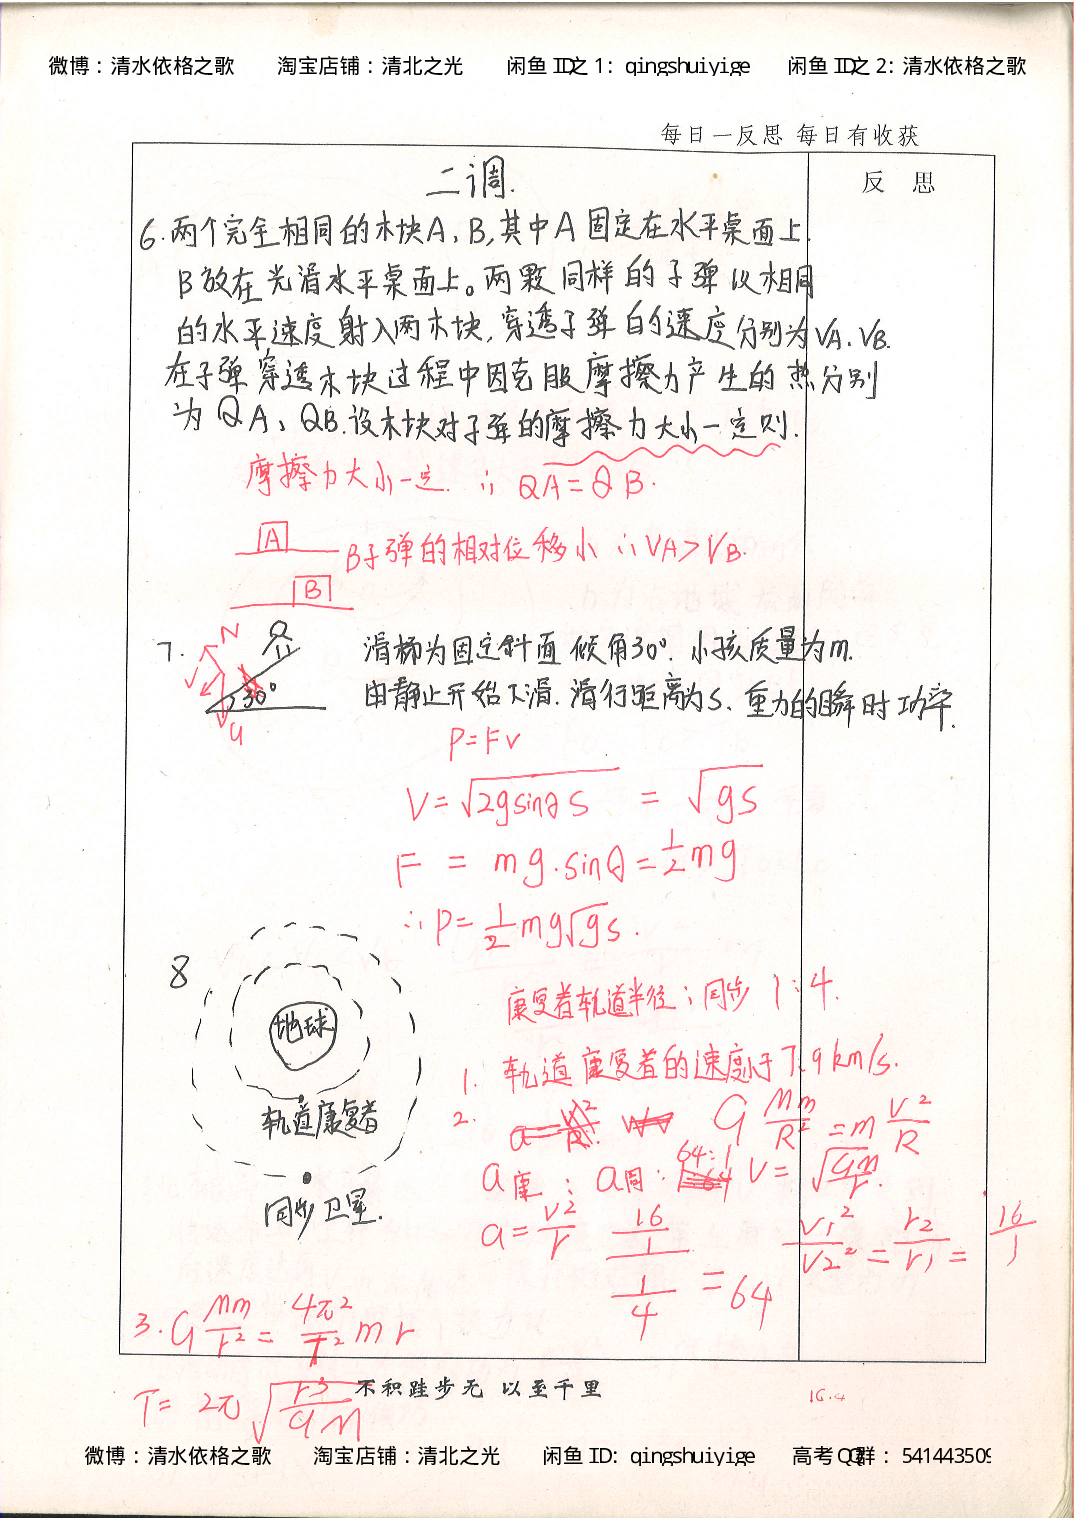 微博：清水依格之歌 淘宝店铺：清北之光 闲鱼 ID 之 1: qingshuiyige 闲鱼 ID 之 2: 清水依格之歌
每日一反思 每日有收获
二调. 反 思
6. 两个完全相同的木块A、B,其中A固定在水平桌面上.
B放在光滑水平桌面上。两颗同样的子弹以相同
的水平速度射入两木块,穿透子弹的速度分别为VA、VB.
在子弹穿透木块过程中因克服摩擦力产生的热分别
为QA、QB.设木块对子弹的摩擦力大小一定则.
摩擦力大小一定. ∴ QA=QB.
A
B子弹的相对位移小 ∴VA>VB.
B
7. 滑梯为固定斜面 倾角30°. 小孩质量为m.
N
V
30°
G
由静止开始下滑. 滑行距离为s. 重力的瞬时功率.
P=Fv
V=√2gsinθs = √gs
F = mg·sinθ=1/2mg
∴P=1/2mg√gs.
8
地球
轨道康复者
同步卫星.
康复者轨道半径:同步 1:4.
1. 轨道康复者的速度小于7.9km/s.
2. G Mm/R² =m V²/R
a康 : a同 : 64:1 V= √GM/r.
a= V²/r 16/1 / 1/4 =64 V1²/V2² = r2/r1 = 16/1
3. G Mm/r² = 4π²/T² mr
T= 2π √r³/GM
不积跬步无 以至千里
16.4
微博：清水依格之歌 淘宝店铺：清北之光 闲鱼 ID: qingshuiyige 高考 QQ 群： 541443509